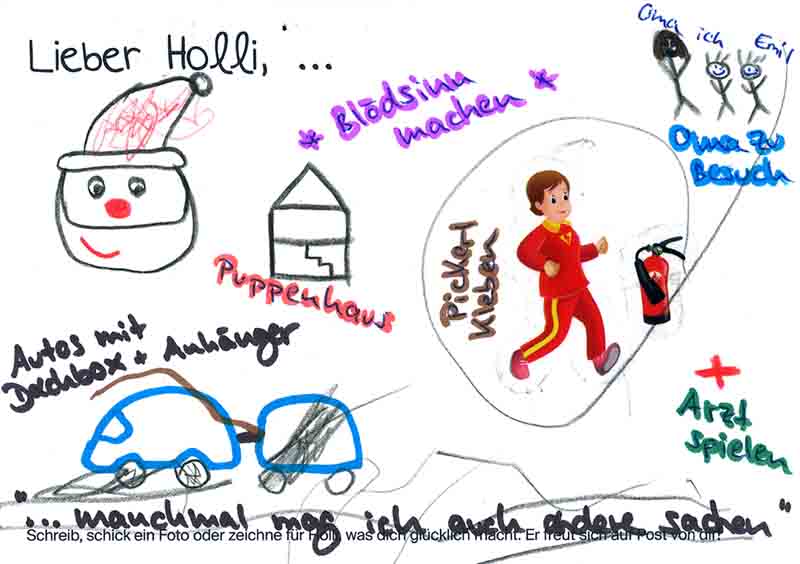 Lieber Holli, ...
Oma ich Emil
* Blödsinn
machen *
Oma zu
Besuch
Puppenhaus
Pickerl
kleben
Autos mit
Dachbox + Anhänger
Arzt
spielen
"... manchmal mag ich auch andere sachen"
Schreib, schick ein Foto oder zeichne für Holli, was dich glücklich macht. Er freut sich auf Post von dir!